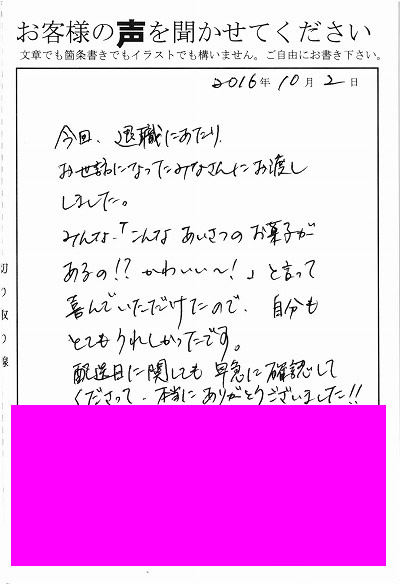 お客様の声を聞かせてください
文章でも箇条書きでもイラストでも構いません。ご自由にお書き下さい。
2016年 10月 2日
今回、退職にあたり、
お世話になったみなさんにお渡し
しました。
みんな、「こんな あいさつの お菓子が
あるの!? かわいい〜!」と言って
喜んでいただけたので、自分も
とてもうれしかったです。
配送日に関しても 早急に確認して
くださって、本当に ありがとうございました!!